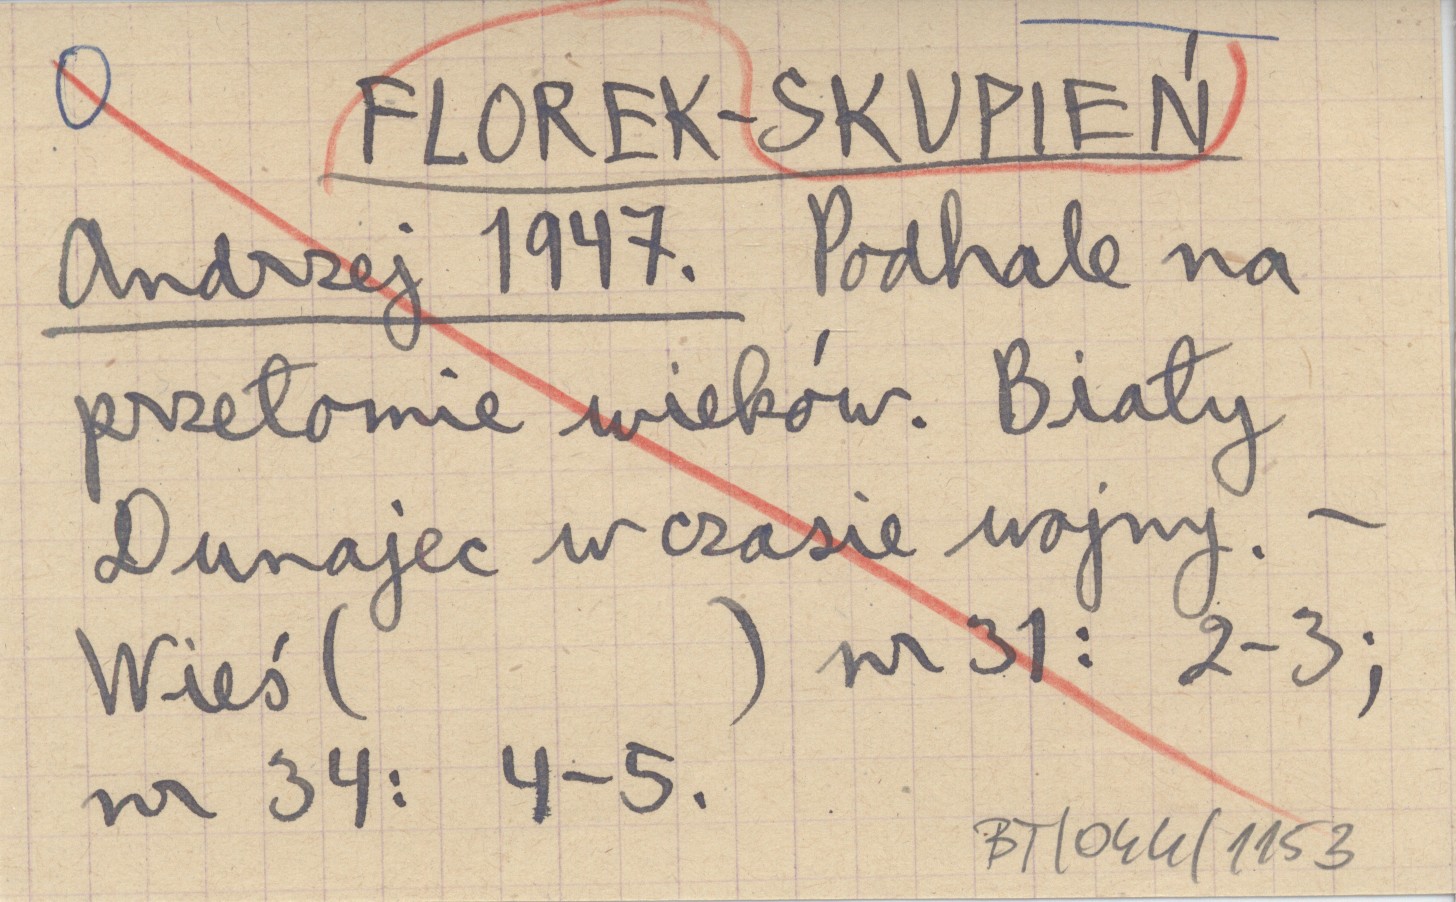 FLOREK-SKUPIEŃ
Andrzej 1947. Podhale na
przełomie wieków. Biały
Dunajec w czasie wojny. —
Wieś (                ) nr 31: 2-3;
nr 34: 4-5.
BT/044/1153